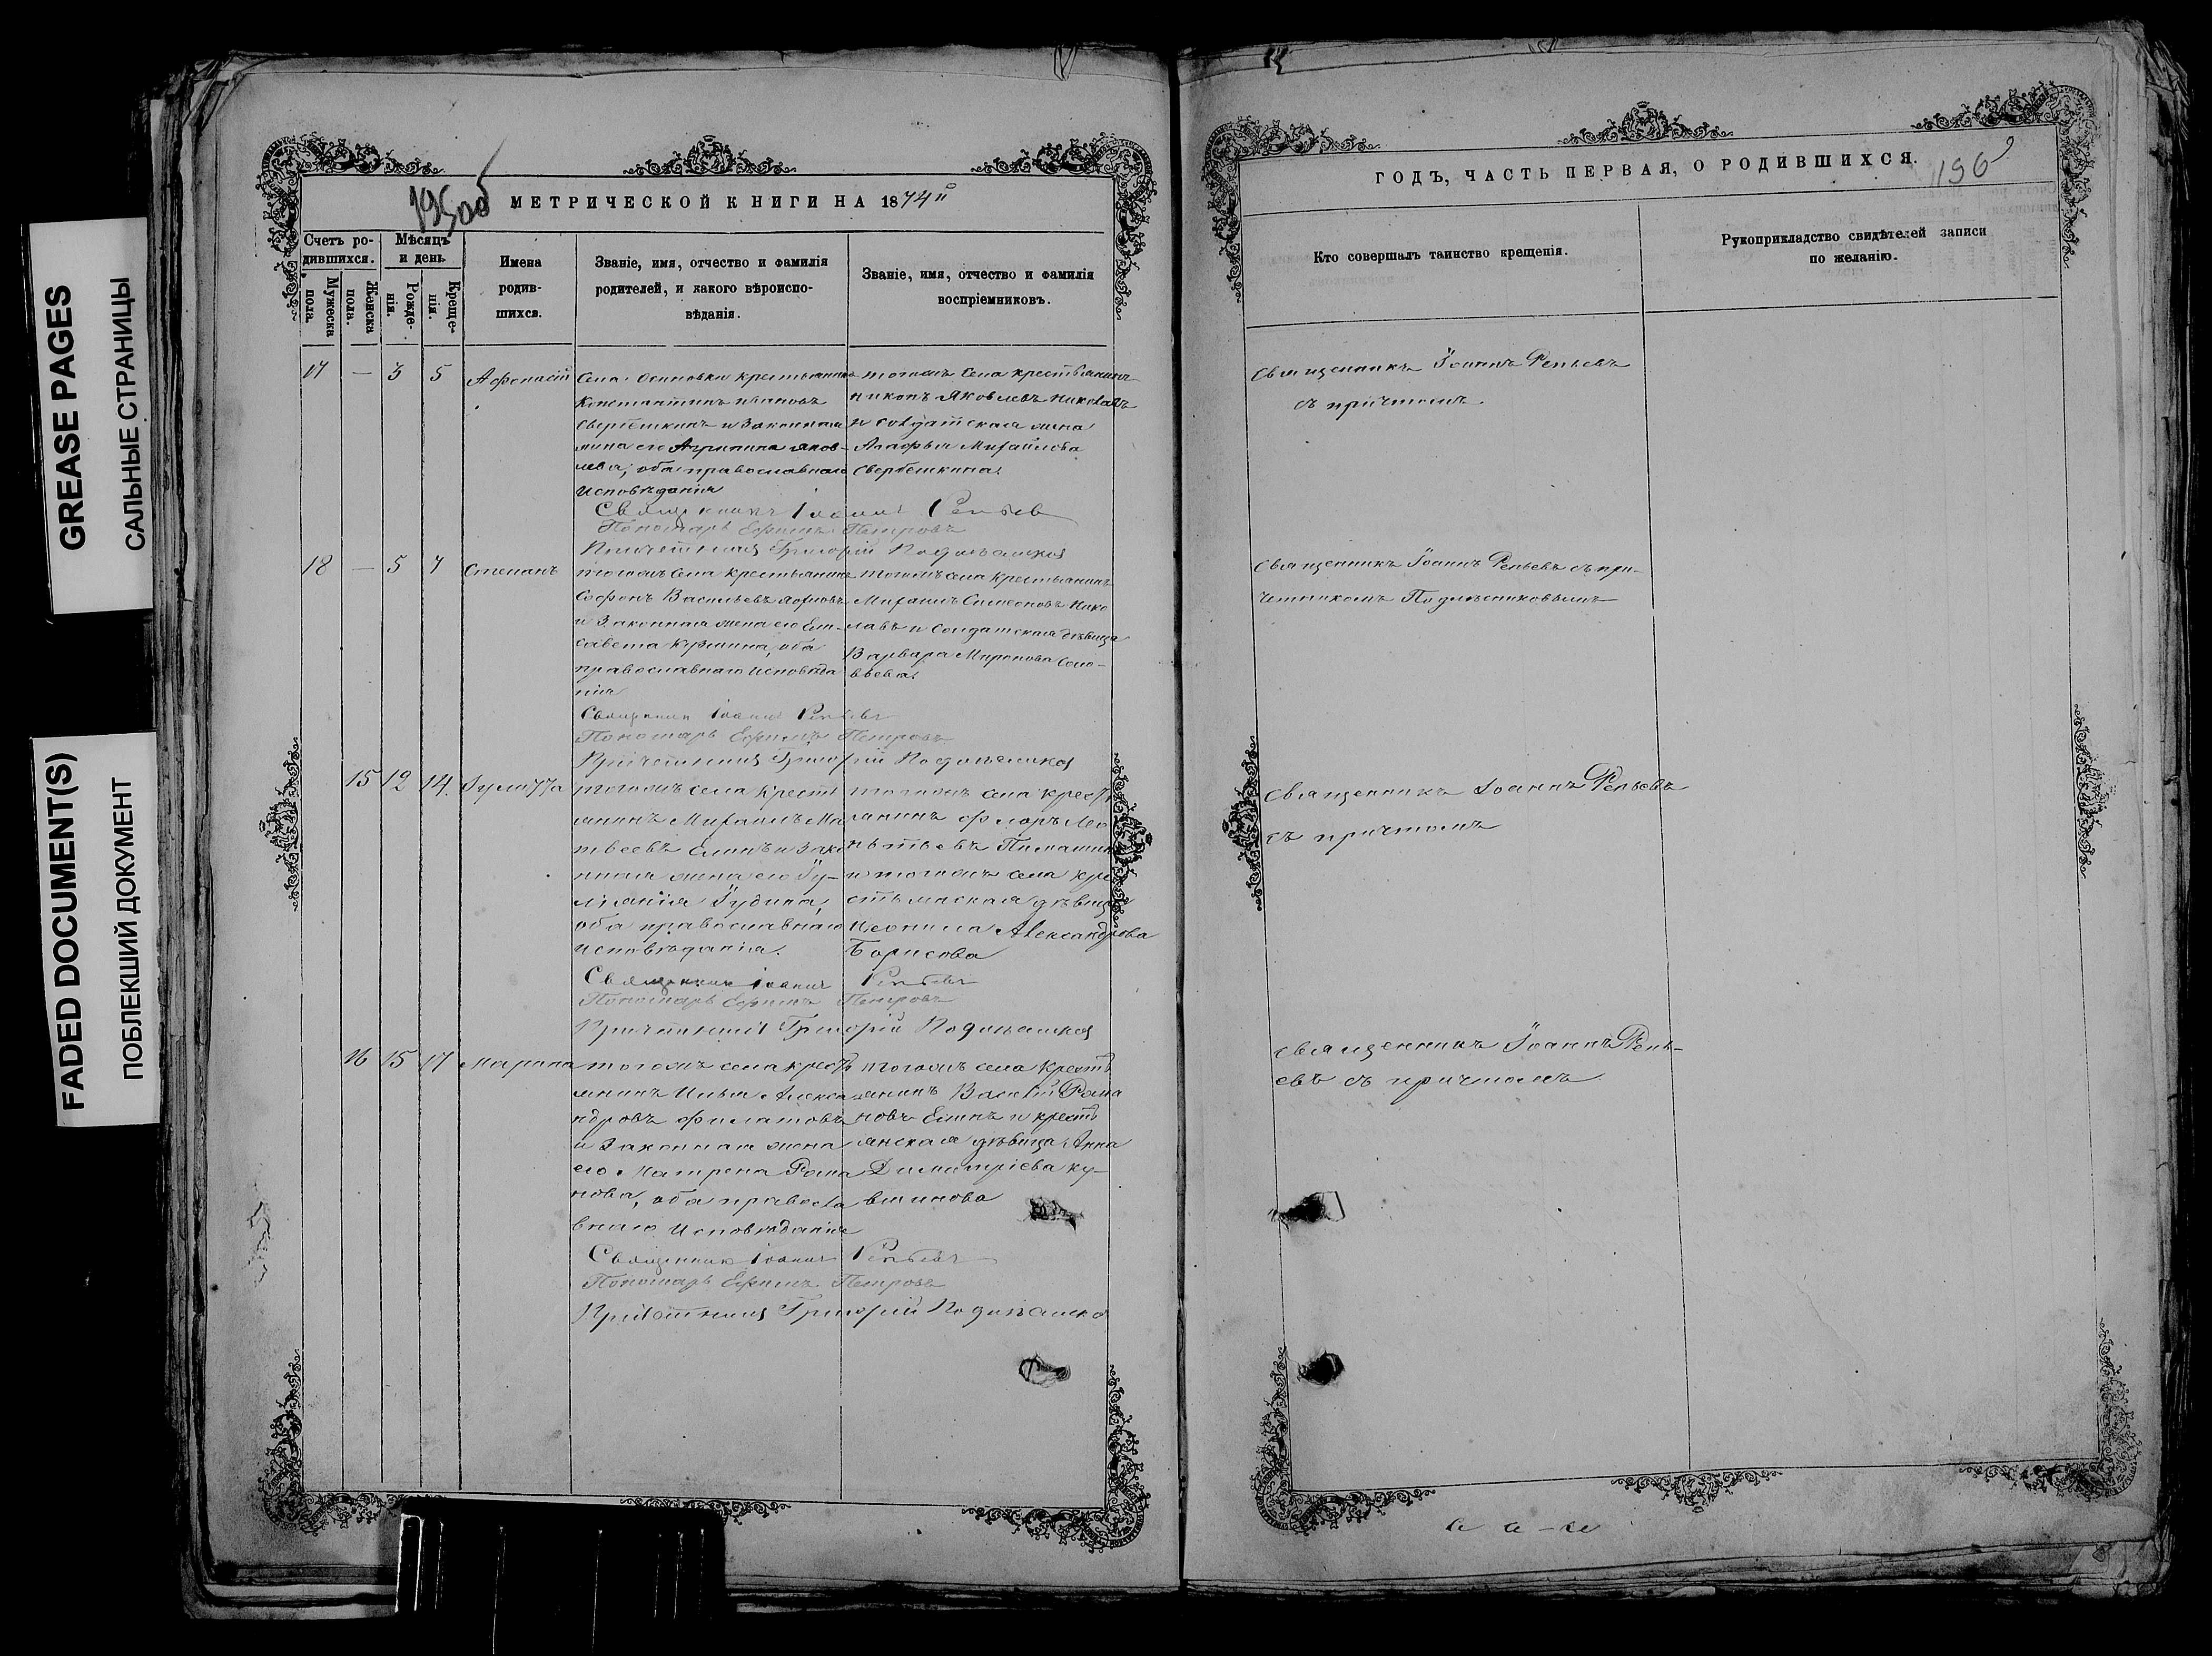 GREASE PAGES
САЛЬНЫЕ СТРАНИЦЫ
FADED DOCUMENT(S)
ПОБЛЕКШИЙ ДОКУМЕНТ
195об
МЕТРИЧЕСКОЙ КНИГИ НА 1874й
Счетъ ро-
дившихся.
Мужеска
пола.
Женска
пола.
Мѣсяцъ
и день
Рожде-
нія.
Креще-
нія.
Имена
родив-
шихся.
Званіе, имя, отчество и фамилія
родителей, и какого вѣроиспо-
вѣданія.
Званіе, имя, отчество и фамилія
воспріемниковъ.
17 — 3 5 Афонасій
Села Осиповки крестьянинъ
Константинъ Ивановъ
и законная
жена его Агрипина Яков-
лева, оба православнаго
исповѣданія
тогожъ села крестьянинъ
Никонъ Яковлевъ Николавъ
и солдатская жена
Агафья Михайлова
Свербешкина.
Священникъ Іоаннъ Репьев
Пономарь Ефимъ Петровъ
Причетникъ Григорій
18 — 5 7 Степанъ
тогожъ села крестьянинъ
Софонъ Васильевъ
и законная жена его Ели-
савета Кузмина, оба
православнаго исповѣда
нія
тогожъ села крестьянинъ
Михаилъ Симеоновъ Нико
лавъ и солдатская дѣвица
Варвара Миронова Соло-
вьева.
Священник Іоаннъ Репьевъ
Пономарь Ефимъ Петровъ
Причетникъ Григорій
15 12 14 Іулитта
тогожъ села кресть
янинъ Михаилъ Ма
твеевъ Елинъ и зако
нная жена его Іу-
ліанія Іудина,
оба православнаго
исповѣданія.
тогожъ села кресть
янинъ Флоръ Лео
нтьевъ
и тогожъ села кре
стьянская дѣвица
Неонила Александрова
Борисова
Священникъ Іоаннъ Репьевъ
Пономарь Ефимъ Петровъ
Причетникъ Григорій
16 15 17 Марина
тогожъ села кресть
янинъ Илья Алекса
ндровъ Филатовъ
и законная жена
его Матрена Рома
нова, оба правосла
внаго исповѣданія
тогожъ села кресть
янинъ Василій Рома
новъ Елинъ и кресть
янская дѣвица Анна
Димитріева Ку-
вшинова
Священник Іоаннъ Репьевъ
Пономарь Ефимъ Петровъ
Причетникъ Григорій
ГОДЪ, ЧАСТЬ ПЕРВАЯ, О РОДИВШИХСЯ.
196
Кто совершалъ таинство крещенія.
Рукоприкладство свидѣтелей записи
по желанію.
Священникъ Іоаннъ Репьевъ
съ причтомъ.
Священникъ Іоаннъ Репьевъ съ при-
четникомъ Подлѣсниковымъ
Священникъ Іоаннъ Репьевъ
съ причтомъ
Священникъ Іоаннъ Репь-
евъ съ причтомъ